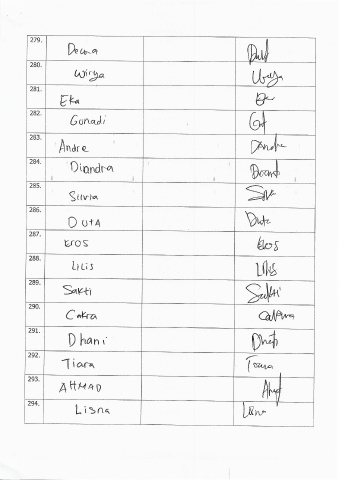 279. Dewa
280. Wirya Wirya
281. Eka Eka
282. Gunadi
283. Andre Andre
284. Diandra
285. Silvia
286. DUTA Duta
287. eros eros
288. LILIS Lilis
289. Sakti Sakti
290. Cakra Cakra
291. Dhani
292. Tiara Tiara
293. AHMAD
294. Lisna